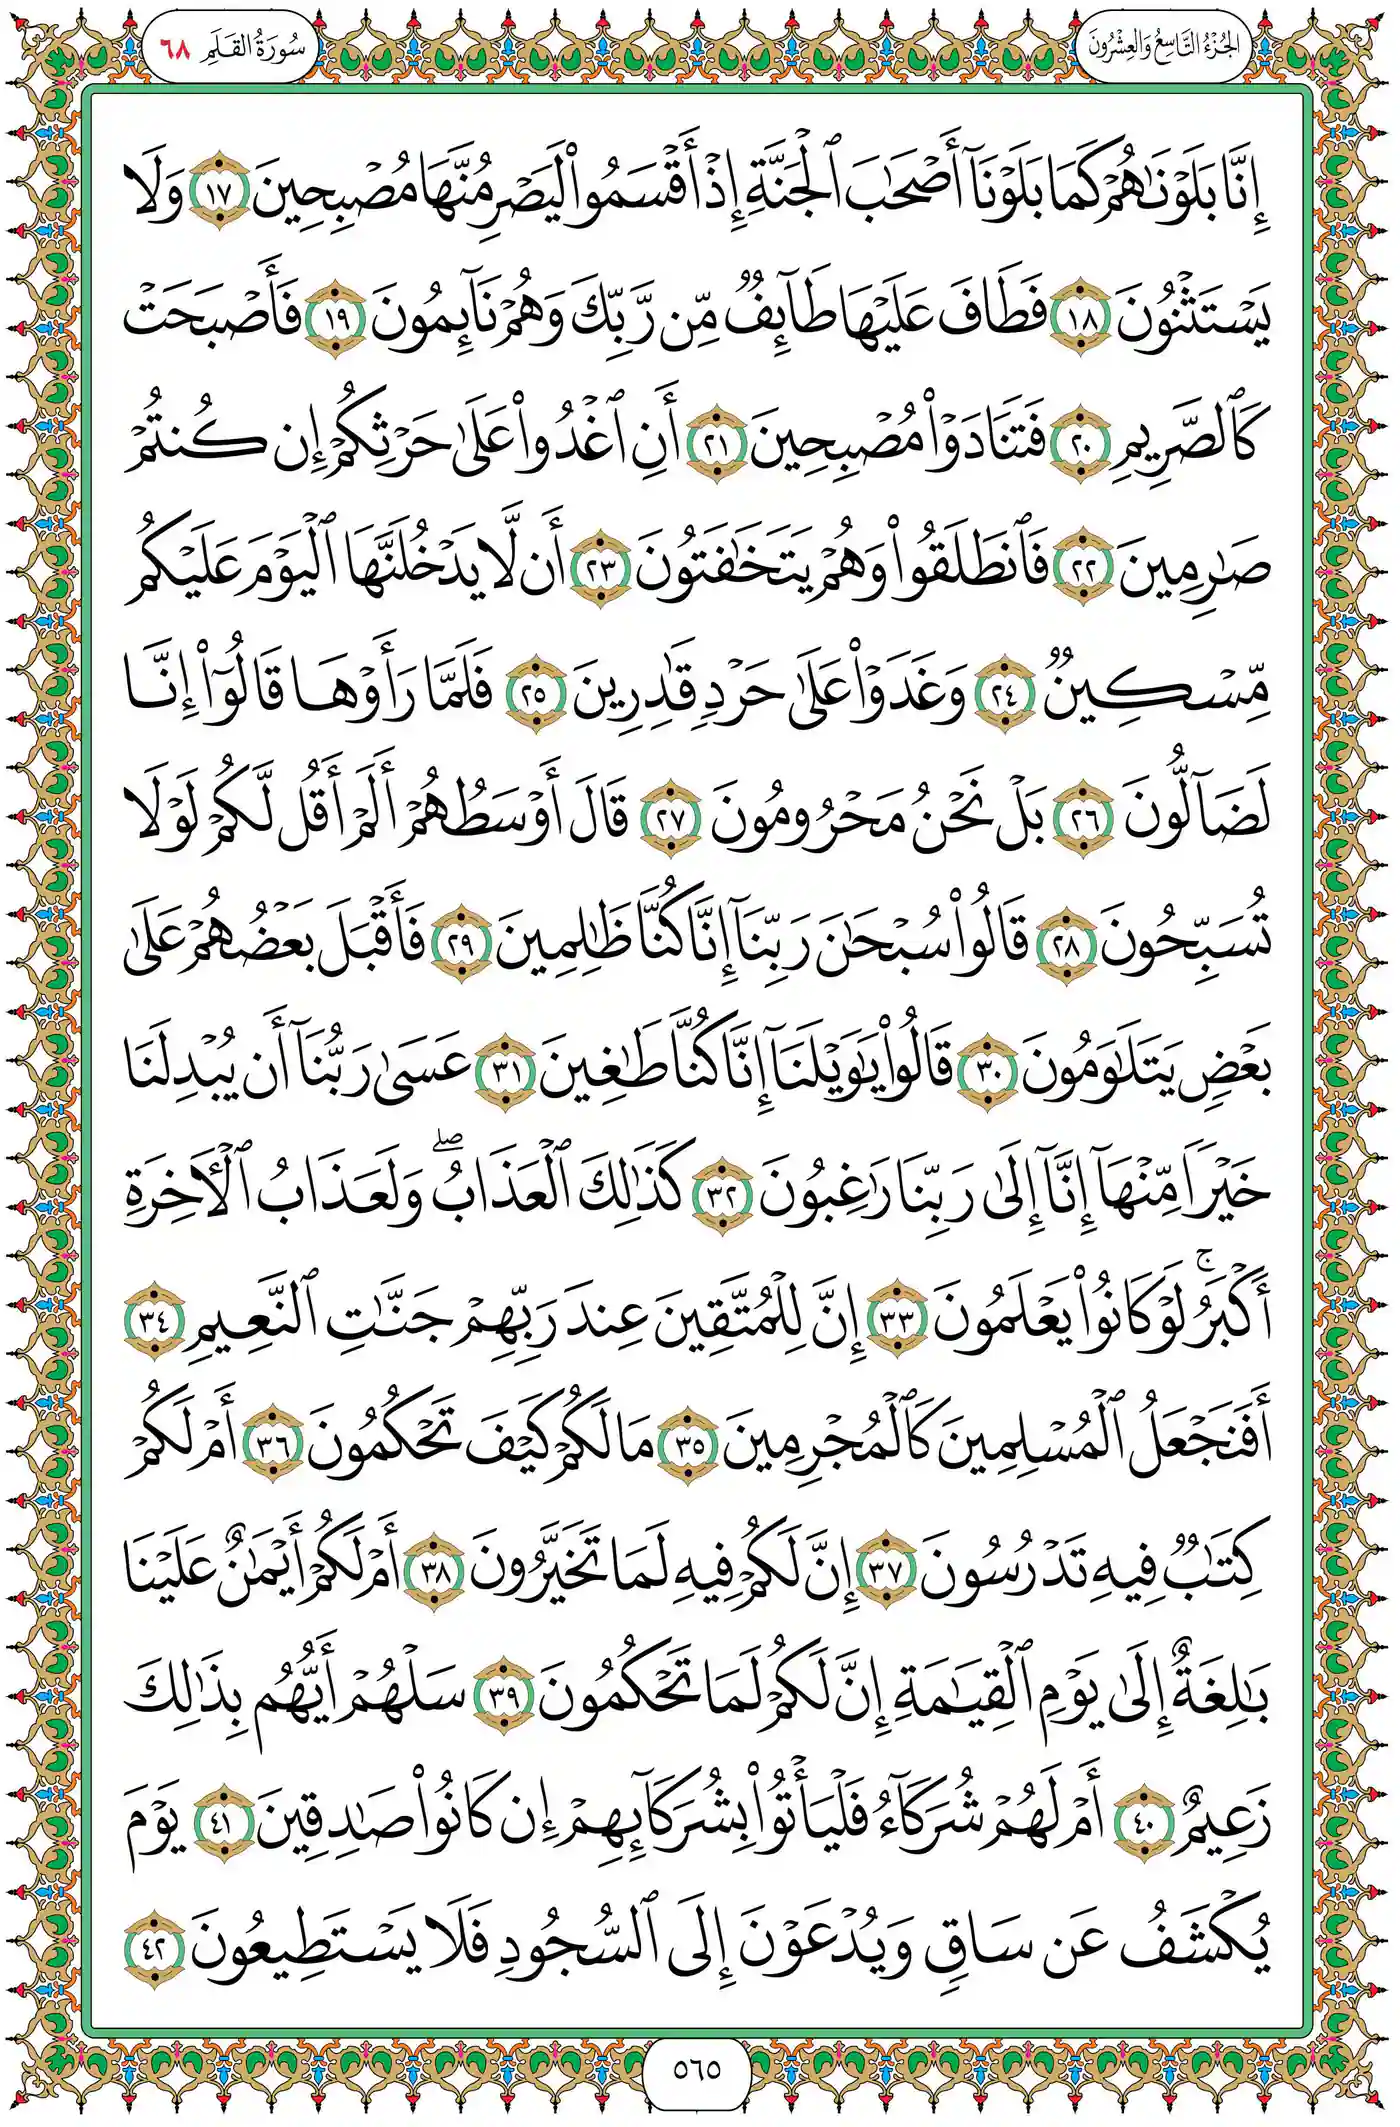 الجزء التاسع والعشرون
سورة القلم ٦٨
إِنَّا بَلَوْنَٰهُمْ كَمَا بَلَوْنَآ أَصْحَٰبَ ٱلْجَنَّةِ إِذْ أَقْسَمُوا۟ لَيَصْرِمُنَّهَا مُصْبِحِينَ ١٧ وَلَا
يَسْتَثْنُونَ ١٨ فَطَافَ عَلَيْهَا طَآئِفٌ مِّن رَّبِّكَ وَهُمْ نَآئِمُونَ ١٩ فَأَصْبَحَتْ
كَٱلصَّرِيمِ ٢٠ فَتَنَادَوْا۟ مُصْبِحِينَ ٢١ أَنِ ٱغْدُوا۟ عَلَىٰ حَرْثِكُمْ إِن كُنتُمْ
صَٰرِمِينَ ٢٢ فَٱنطَلَقُوا۟ وَهُمْ يَتَخَٰفَتُونَ ٢٣ أَن لَّا يَدْخُلَنَّهَا ٱلْيَوْمَ عَلَيْكُم
مِّسْكِينٌ ٢٤ وَغَدَوْا۟ عَلَىٰ حَرْدٍ قَٰدِرِينَ ٢٥ فَلَمَّا رَأَوْهَا قَالُوٓا۟ إِنَّا
لَضَآلُّونَ ٢٦ بَلْ نَحْنُ مَحْرُومُونَ ٢٧ قَالَ أَوْسَطُهُمْ أَلَمْ أَقُل لَّكُمْ لَوْلَا
تُسَبِّحُونَ ٢٨ قَالُوا۟ سُبْحَٰنَ رَبِّنَآ إِنَّا كُنَّا ظَٰلِمِينَ ٢٩ فَأَقْبَلَ بَعْضُهُمْ عَلَىٰ
بَعْضٍ يَتَلَٰوَمُونَ ٣٠ قَالُوا۟ يَٰوَيْلَنَآ إِنَّا كُنَّا طَٰغِينَ ٣١ عَسَىٰ رَبُّنَآ أَن يُبْدِلَنَا
خَيْرًا مِّنْهَآ إِنَّآ إِلَىٰ رَبِّنَا رَٰغِبُونَ ٣٢ كَذَٰلِكَ ٱلْعَذَابُ ۖ وَلَعَذَابُ ٱلْـَٔاخِرَةِ
أَكْبَرُ ۚ لَوْ كَانُوا۟ يَعْلَمُونَ ٣٣ إِنَّ لِلْمُتَّقِينَ عِندَ رَبِّهِمْ جَنَّٰتِ ٱلنَّعِيمِ ٣٤
أَفَنَجْعَلُ ٱلْمُسْلِمِينَ كَٱلْمُجْرِمِينَ ٣٥ مَا لَكُمْ كَيْفَ تَحْكُمُونَ ٣٦ أَمْ لَكُمْ
كِتَٰبٌ فِيهِ تَدْرُسُونَ ٣٧ إِنَّ لَكُمْ فِيهِ لَمَا تَخَيَّرُونَ ٣٨ أَمْ لَكُمْ أَيْمَٰنٌ عَلَيْنَا
بَٰلِغَةٌ إِلَىٰ يَوْمِ ٱلْقِيَٰمَةِ إِنَّ لَكُمْ لَمَا تَحْكُمُونَ ٣٩ سَلْهُمْ أَيُّهُم بِذَٰلِكَ
زَعِيمٌ ٤٠ أَمْ لَهُمْ شُرَكَآءُ فَلْيَأْتُوا۟ بِشُرَكَآئِهِمْ إِن كَانُوا۟ صَٰدِقِينَ ٤١ يَوْمَ
يُكْشَفُ عَن سَاقٍ وَيُدْعَوْنَ إِلَى ٱلسُّجُودِ فَلَا يَسْتَطِيعُونَ ٤٢
٥٦٥